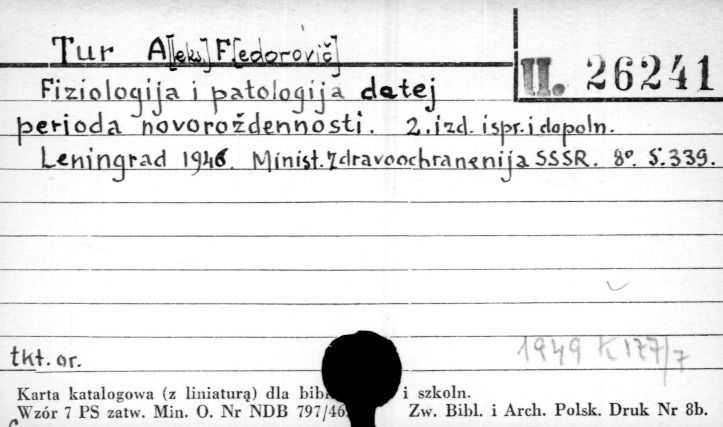 Tur A[leks.] F[edorovič]
II. 26241
Fiziologija i patologija detej
perioda novoroždennosti. 2. izd. ispr. i dopoln.
Leningrad 1946. Minist. Zdravoochranenija SSSR. 8º. S. 339.
tkt. or.
1949 K 177/7
Karta katalogowa (z liniaturą) dla i szkoln.
Wzór 7 PS zatw. Min. O. Nr NDB Zw. Bibl. i Arch. Polsk. Druk Nr 8b.